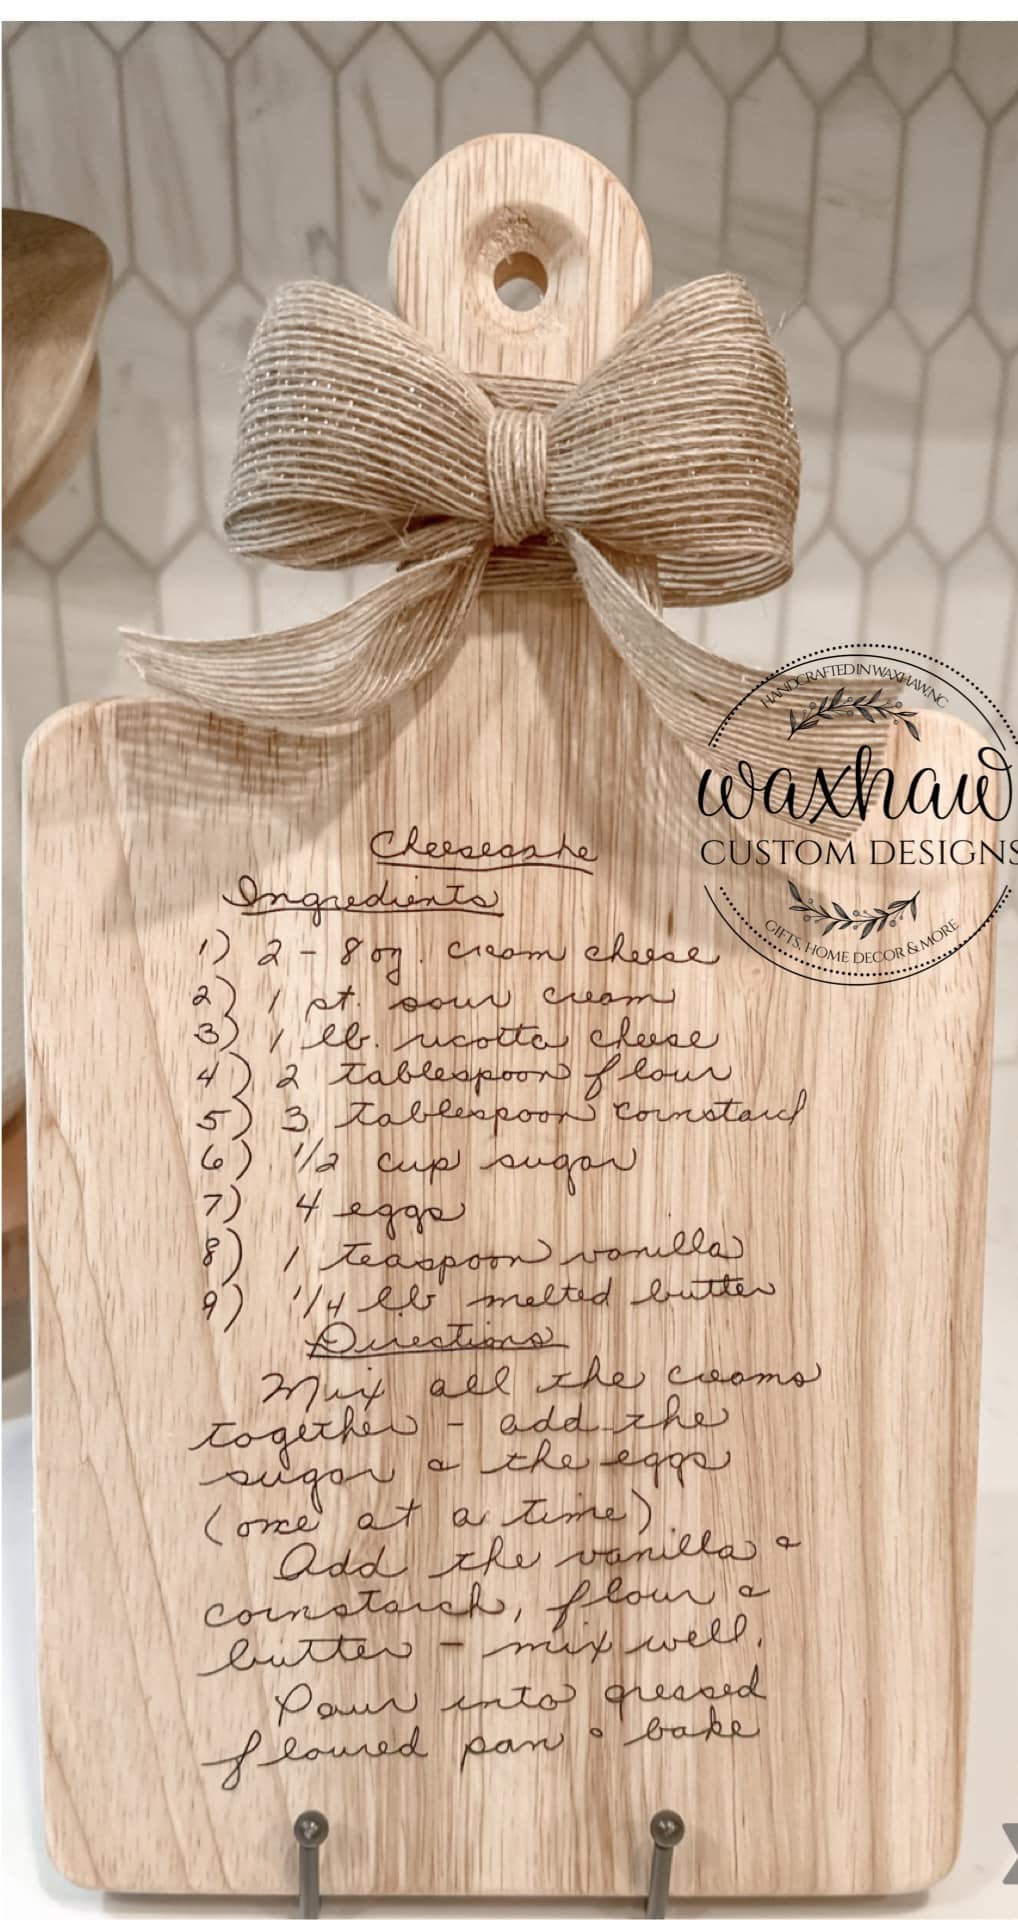 HANDCRAFTED IN WAXHAW, NC
waxhaw
CUSTOM DESIGNS
GIFTS, HOME DECOR & MORE
Cheesecake
Ingredients
1) 2 - 8 oz. cream cheese
2) 1 pt. sour cream
3) 1 lb. ricotta cheese
4) 2 tablespoon flour
5) 3 tablespoon cornstarch
6) 1/2 cup sugar
7) 4 eggs
8) 1 teaspoon vanilla
9) 1/4 lb melted butter
Directions
Mix all the creams
together - add the
sugar & the eggs
(one at a time)
Add the vanilla &
cornstarch, flour &
butter - mix well.
Pour into greased
floured pan & bake